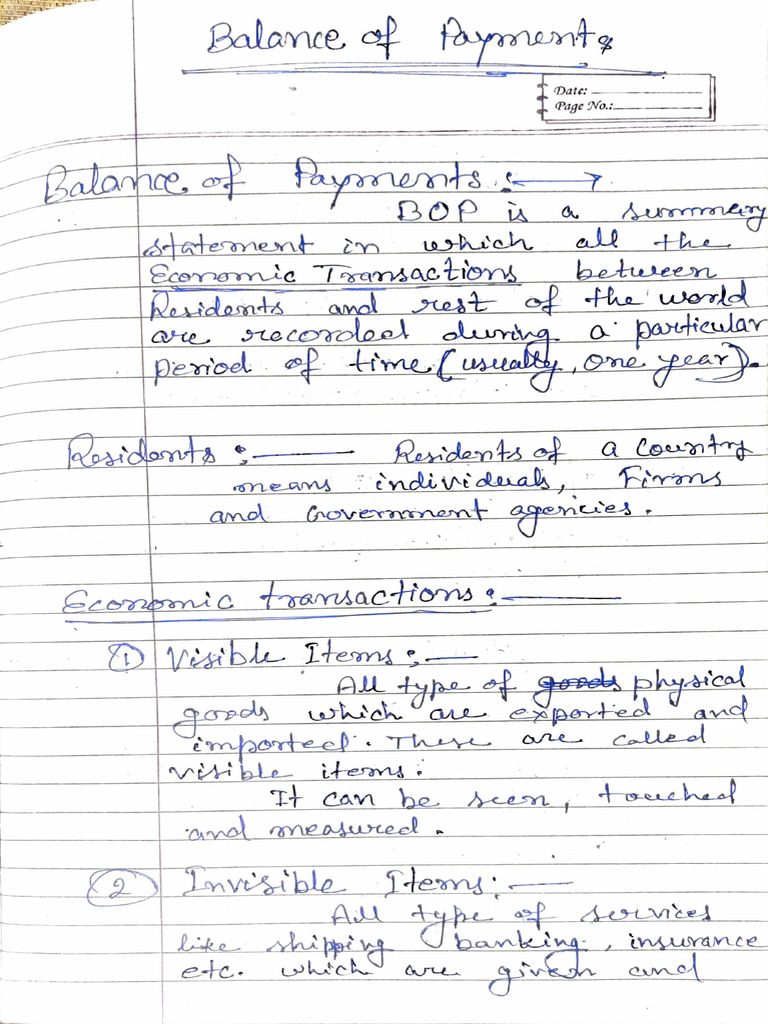 Balance of Payments
Date:
Page No.:
Balance of Payments :
BOP is a summary
statement in which all the
Economic Transactions between
Residents and rest of the world
are recorded during a particular
period of time (usually, one year).
Residents :— Residents of a country
means individuals, Firms
and Government agencies.
Economic transactions :—
① Visible Items :—
All type of goods physical
goods which are exported and
imported. These are called
visible items.
It can be seen, touched
and measured.
② Invisible Items :—
All type of services
like shipping banking, insurance
etc. which are given and